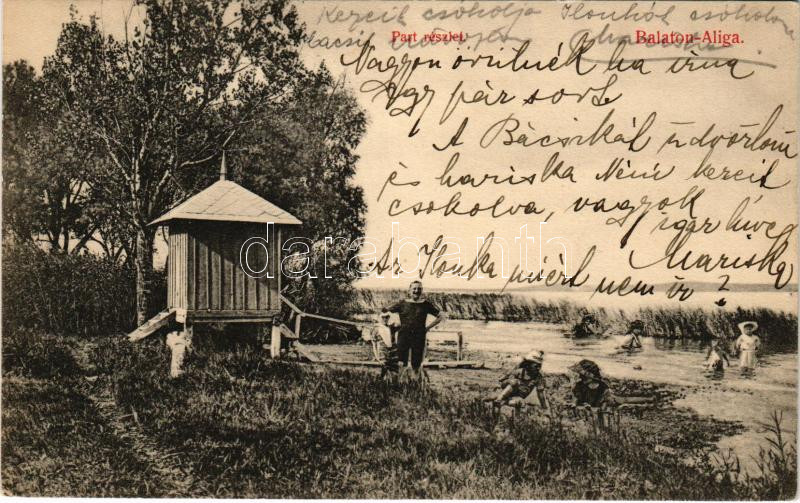 Kezeit csókolja Ilonkát csókolom
Part részlet. Balaton-Aliga.
Nagyon örülnék ha írna
egy pár sort
A Bácsikát üdvözlöm
és Mariska Néni kezeit
csokolva, vagyok
igaz híve
Mariska
Az Ilonka miért nem ír ?
darabanth